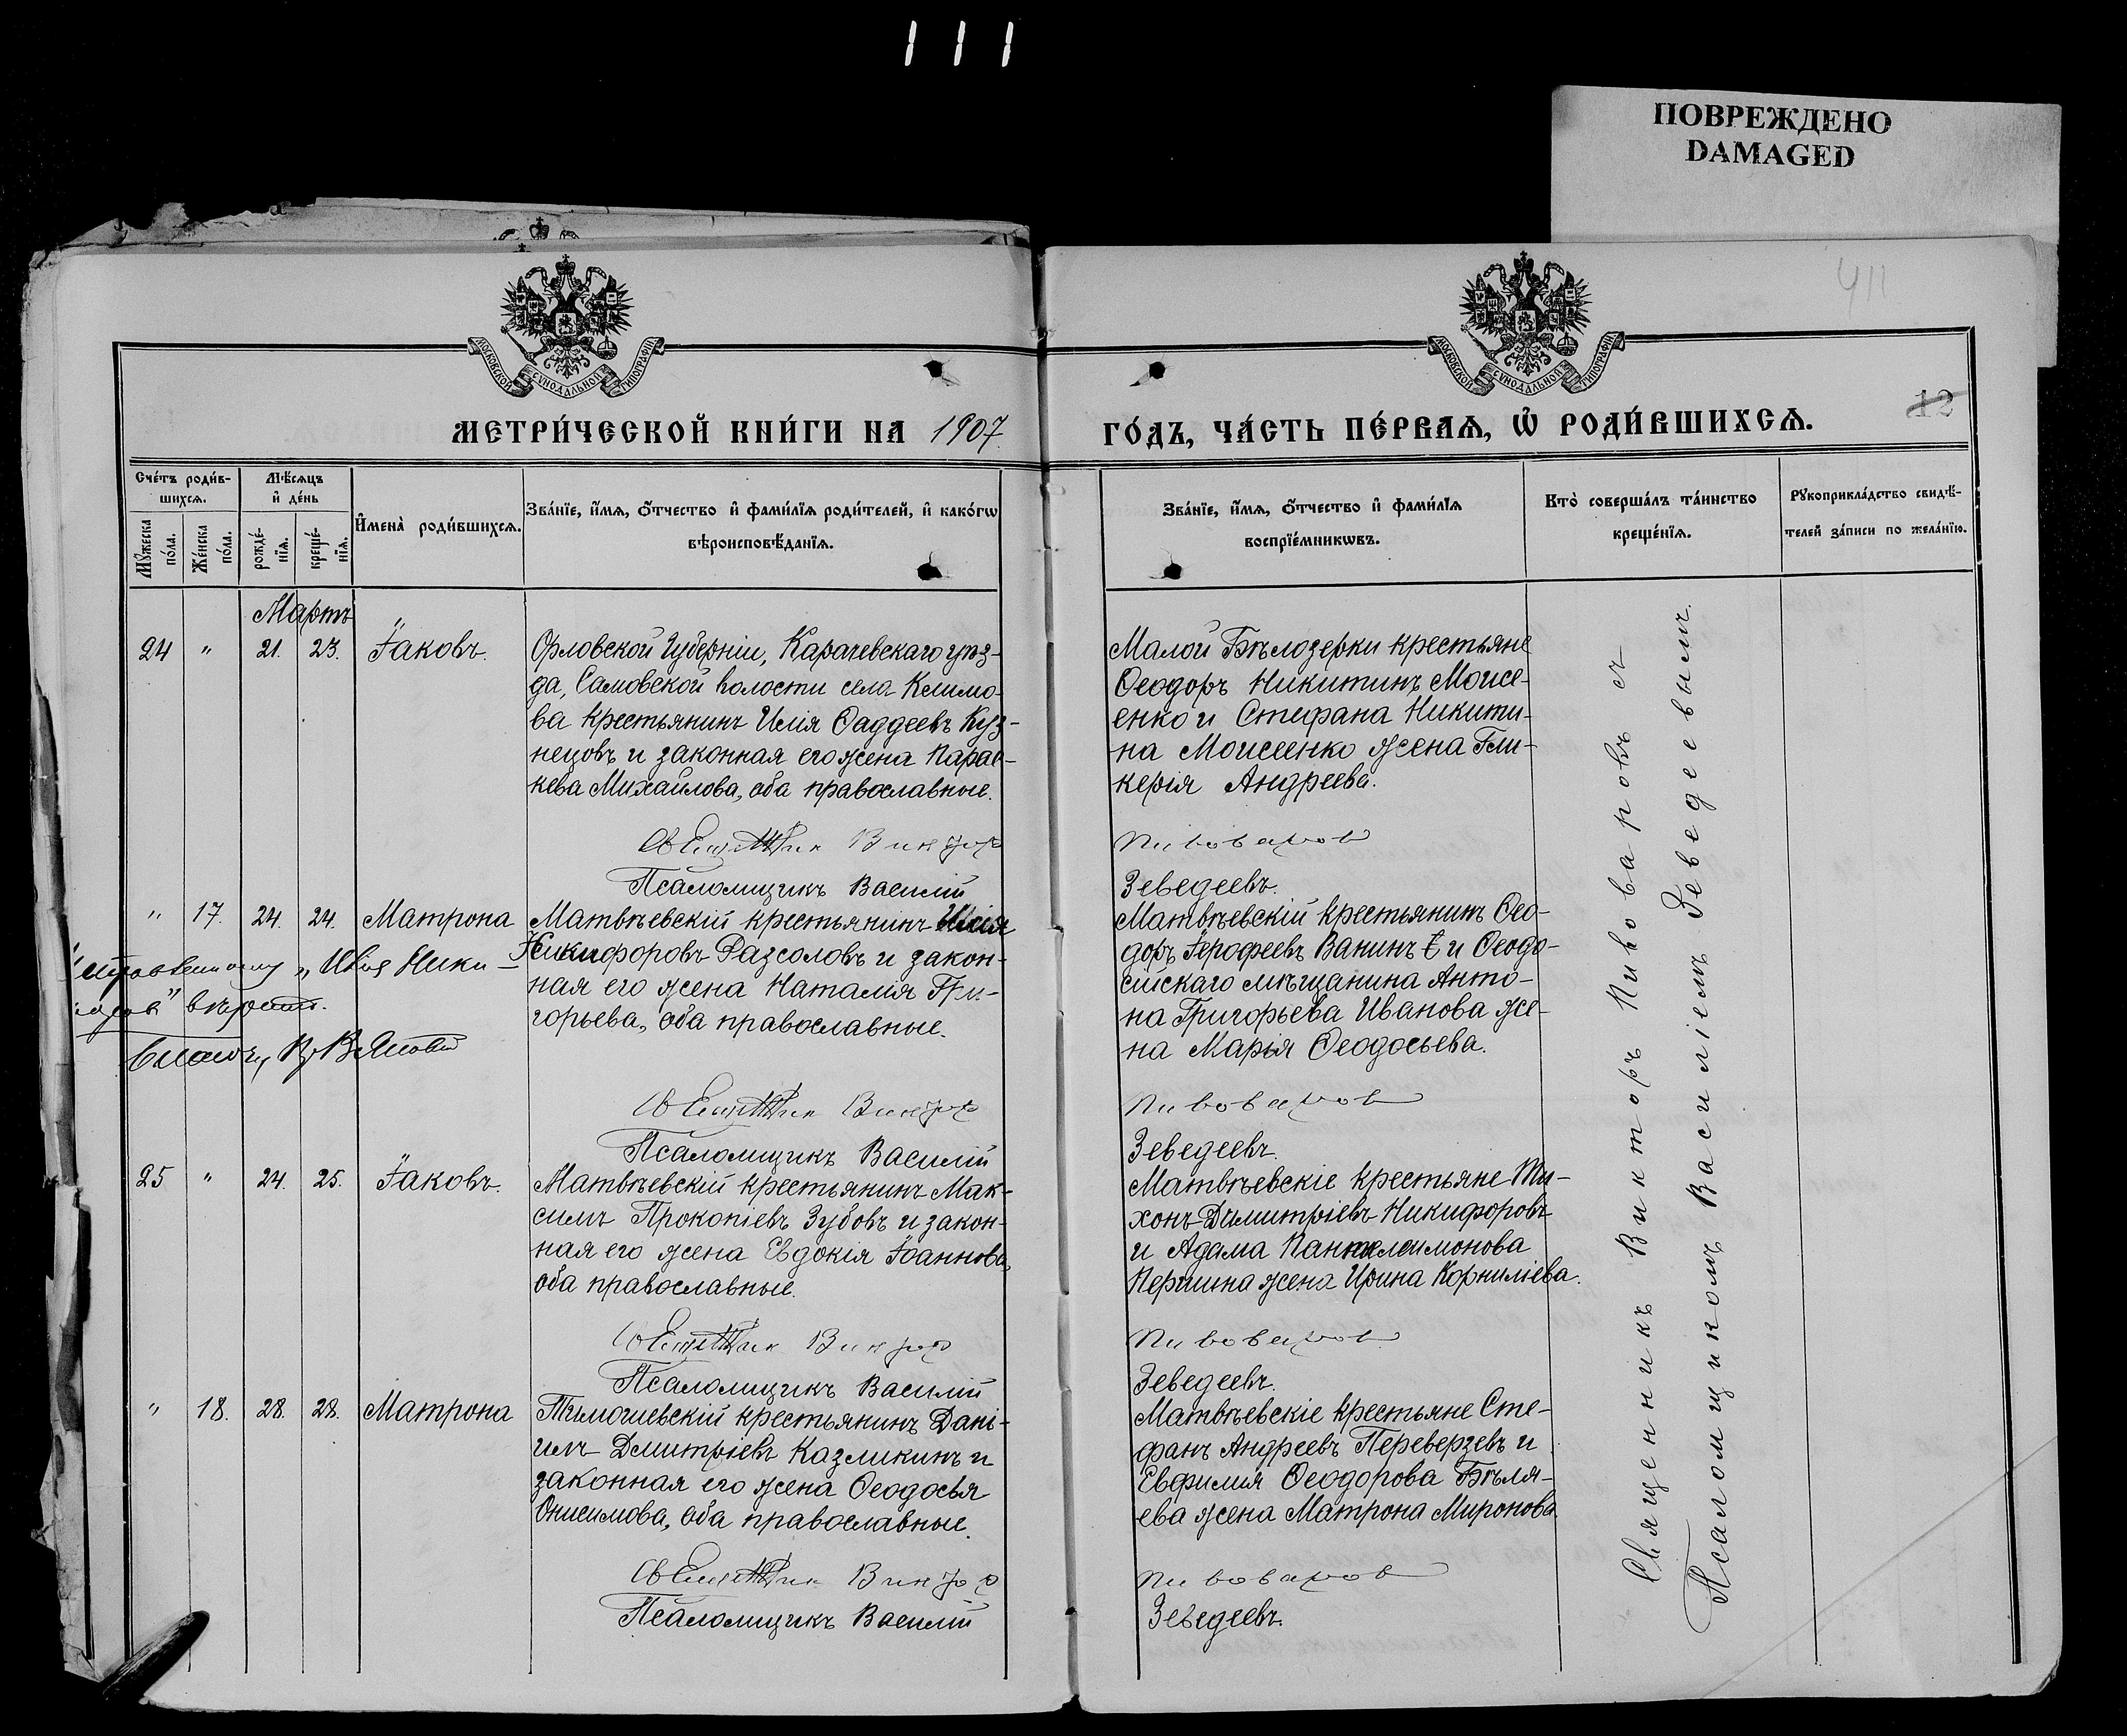 111
ПОВРЕЖДЕНО
DAMAGED
411
12
МОСКОВСКОЙ СѴНОДАЛЬНОЙ ТИПОГРАФІИ
МОСКОВСКОЙ СѴНОДАЛЬНОЙ ТИПОГРАФІИ
МЕТРИ́ЧЕСКОЙ КНИ́ГИ НА 1907
ГО́ДЪ, ЧА́СТЬ ПЕ́РВАѦ, Ѡ҆ РОДИ́ВШИХСѦ.
Сче́тъ роди́в-
шихсѧ.
Мꙋ́жеска
по́ла.
Же́нска
по́ла.
Мѣ́сѧцъ
и҆ де́нь
рожде́-
нїѧ.
креще́-
нїѧ.
И҆мена̀ роди́вшихсѧ.
Зва́нїе, и҆́мѧ, ѻ҆́тчество и҆ фами́лїѧ роди́телей, и҆ како́гѡ
вѣроисповѣ́данїѧ.
Зва́нїе, и҆́мѧ, ѻ҆́тчество и҆ фами́лїѧ
воспрїе́мникѡвъ.
Кто̀ соверша́лъ та́инство
креще́нїѧ.
Рꙋкоприкла́дство свидѣ́-
телей за́писи по жела́нїю.
Мартъ
24 " 21. 23. Іаковъ.
Орловской губерніи, Карачевскаго уѣз-
да, Самовской волости села Климо-
ва крестьянинъ Илія Ѳаддеевъ Куз-
нецовъ и законная его жена Парас-
кева Михайлова, оба православные.
Священник Виктор
Псаломщикъ Василій
Малой Бѣлозерки крестьяне
Ѳеодоръ Никитинъ Моисе-
енко и Стефана Никити-
на Моисеенко жена Гли-
керія Андреева.
Пивоваров
Зеведеевъ.
" 17. 24. 24. Матрона
Матвѣевскій крестьянинъ Илія
Никифоровъ Разсоловъ и закон-
ная его жена Наталія Гри-
горьева, оба православные.
Священник Виктор
Псаломщикъ Василій
"Илія Ники-
Матвѣевскій крестьянинъ Ѳео-
доръ Іерофеевъ Ванинъ и Ѳеодо-
сійскаго мѣщанина Анто-
на Григорьева Иванова же-
на Марья Ѳеодосьева.
Пивоваров
Зеведеевъ.
25 " 24. 25. Іаковъ.
Матвѣевскій крестьянинъ Мак-
симъ Прокопіевъ Зубовъ и закон-
ная его жена Евдокія Іоаннова,
оба православные.
Священник Виктор
Псаломщикъ Василій
Матвѣевскіе крестьяне Ти-
хонъ Димитріевъ Никифоровъ
и Адама Пантелеимонова
Першина жена Ирина Корниліева.
Пивоваров
Зеведеевъ.
" 18. 28. 28. Матрона
Тимошевскій крестьянинъ Дані-
илъ Дмитріевъ Казликинъ и
законная его жена Ѳеодосья
Онисимова, оба православные.
Священник Виктор
Псаломщикъ Василій
Матвѣевскіе крестьяне Сте-
фанъ Андреевъ Переверзевъ и
Евфимия Ѳеодорова Бѣля-
ева жена Матрона Миронова.
Пивоваров
Зеведеевъ.
Священникъ Викторъ Пивоваровъ съ
Псаломщикомъ Василіемъ Зеведеевымъ.